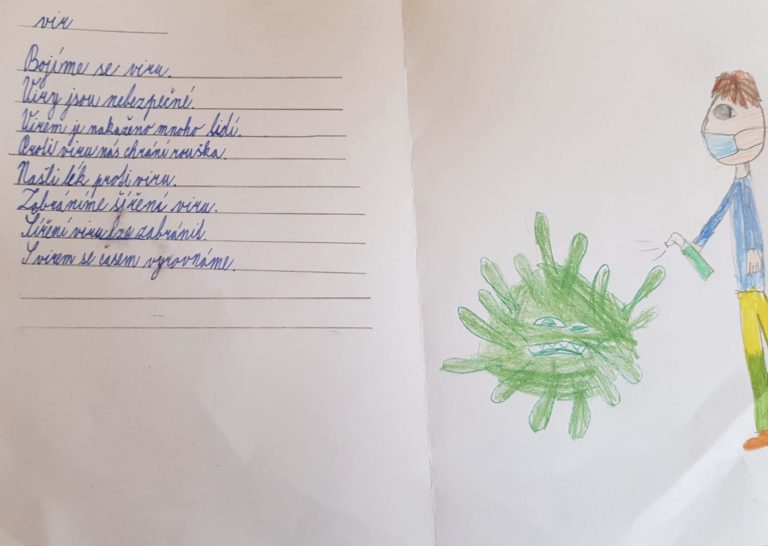 vir
Bojíme se viru.
Viry jsou nebezpečné.
Virem je nakaženo mnoho lidí.
Proti viru nás chrání rouška.
Našli lék proti viru.
Zabráníme šíření viru.
Šíření viru lze zabránit.
S virem se časem vyrovnáme.